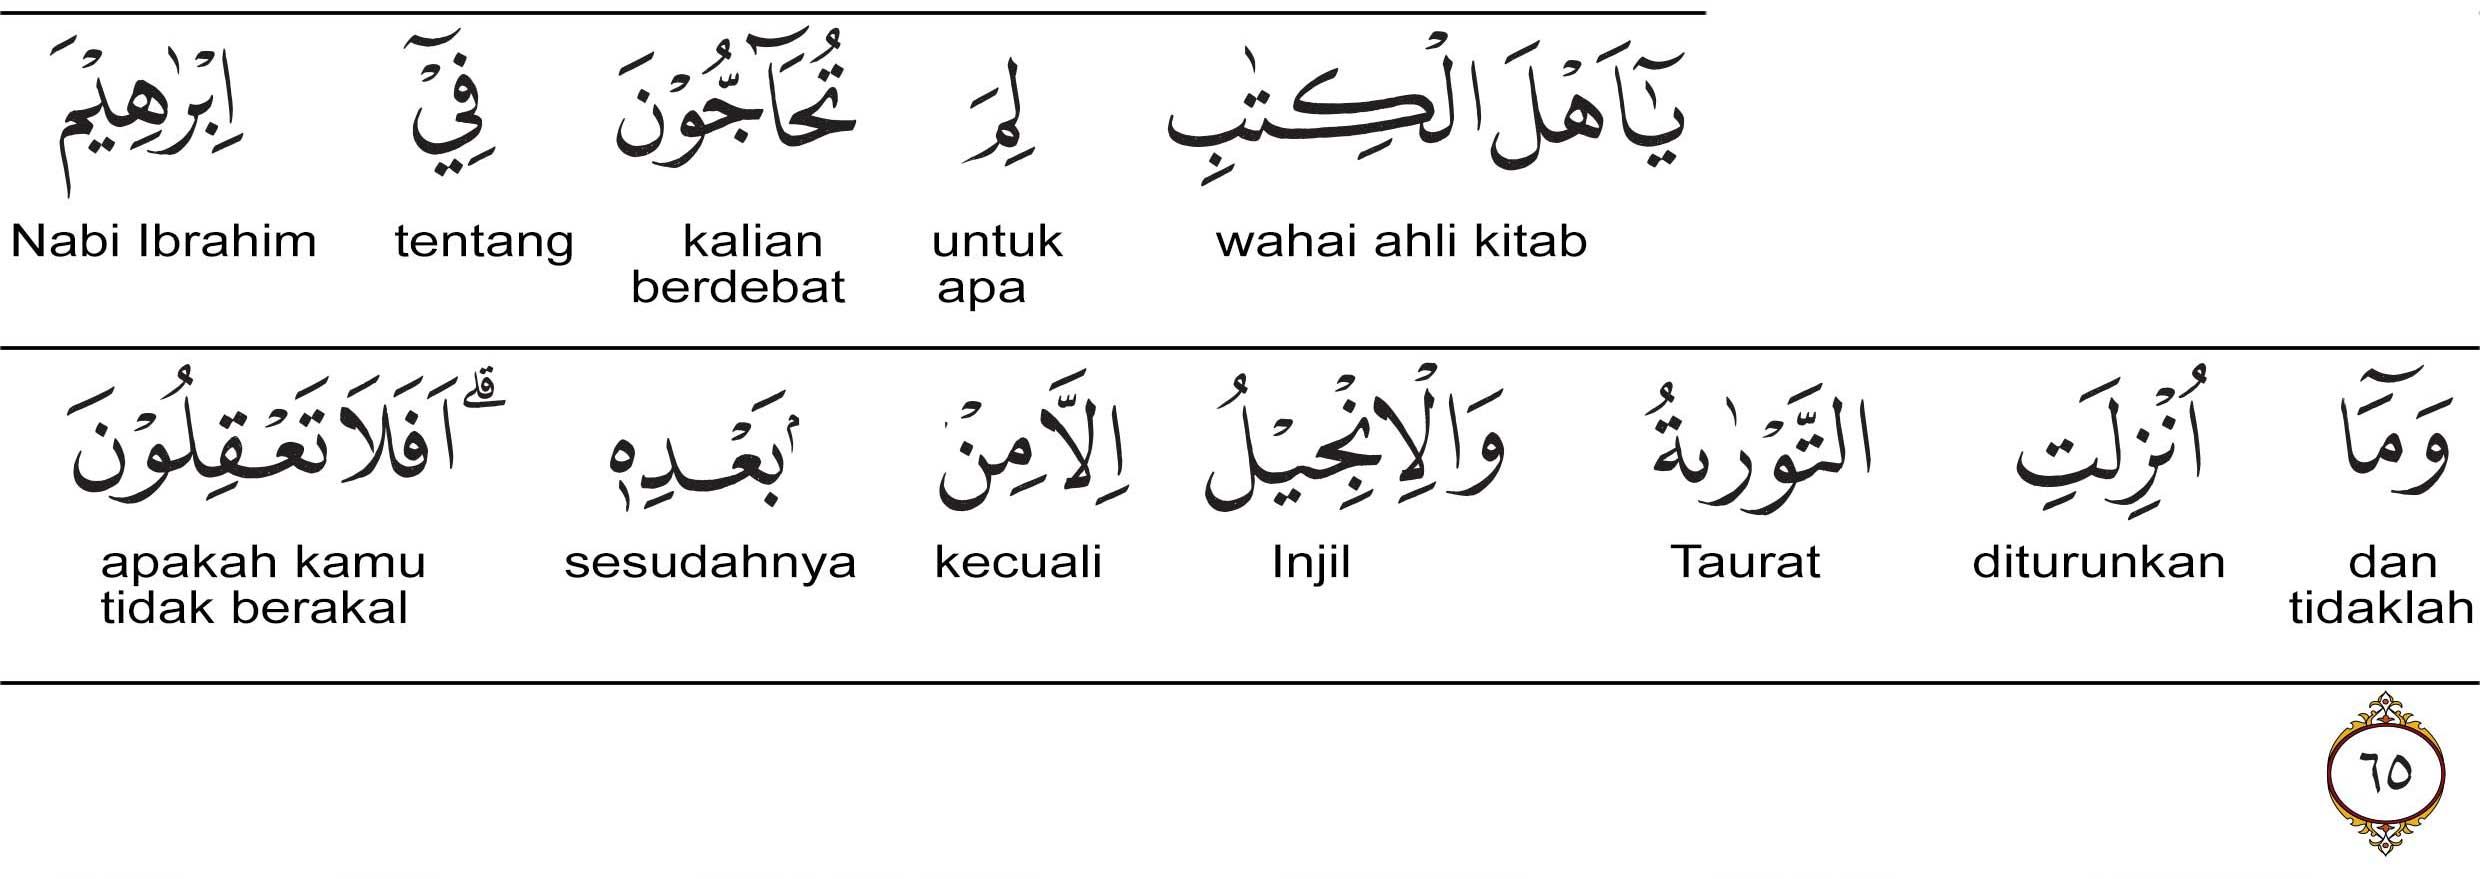 يٰٓاَهْلَ الْكِتٰبِ لِمَ تُحَاۤجُّوْنَ فِيْٓ اِبْرٰهِيْمَ
Nabi Ibrahim tentang kalian untuk wahai ahli kitab
berdebat apa
وَمَآ اُنْزِلَتِ التَّوْرٰىةُ وَالْاِنْجِيْلُ اِلَّا مِنْۢ بَعْدِهٖۗ اَفَلَا تَعْقِلُوْنَ
apakah kamu sesudahnya kecuali Injil Taurat diturunkan dan
tidak berakal tidaklah
٦٥